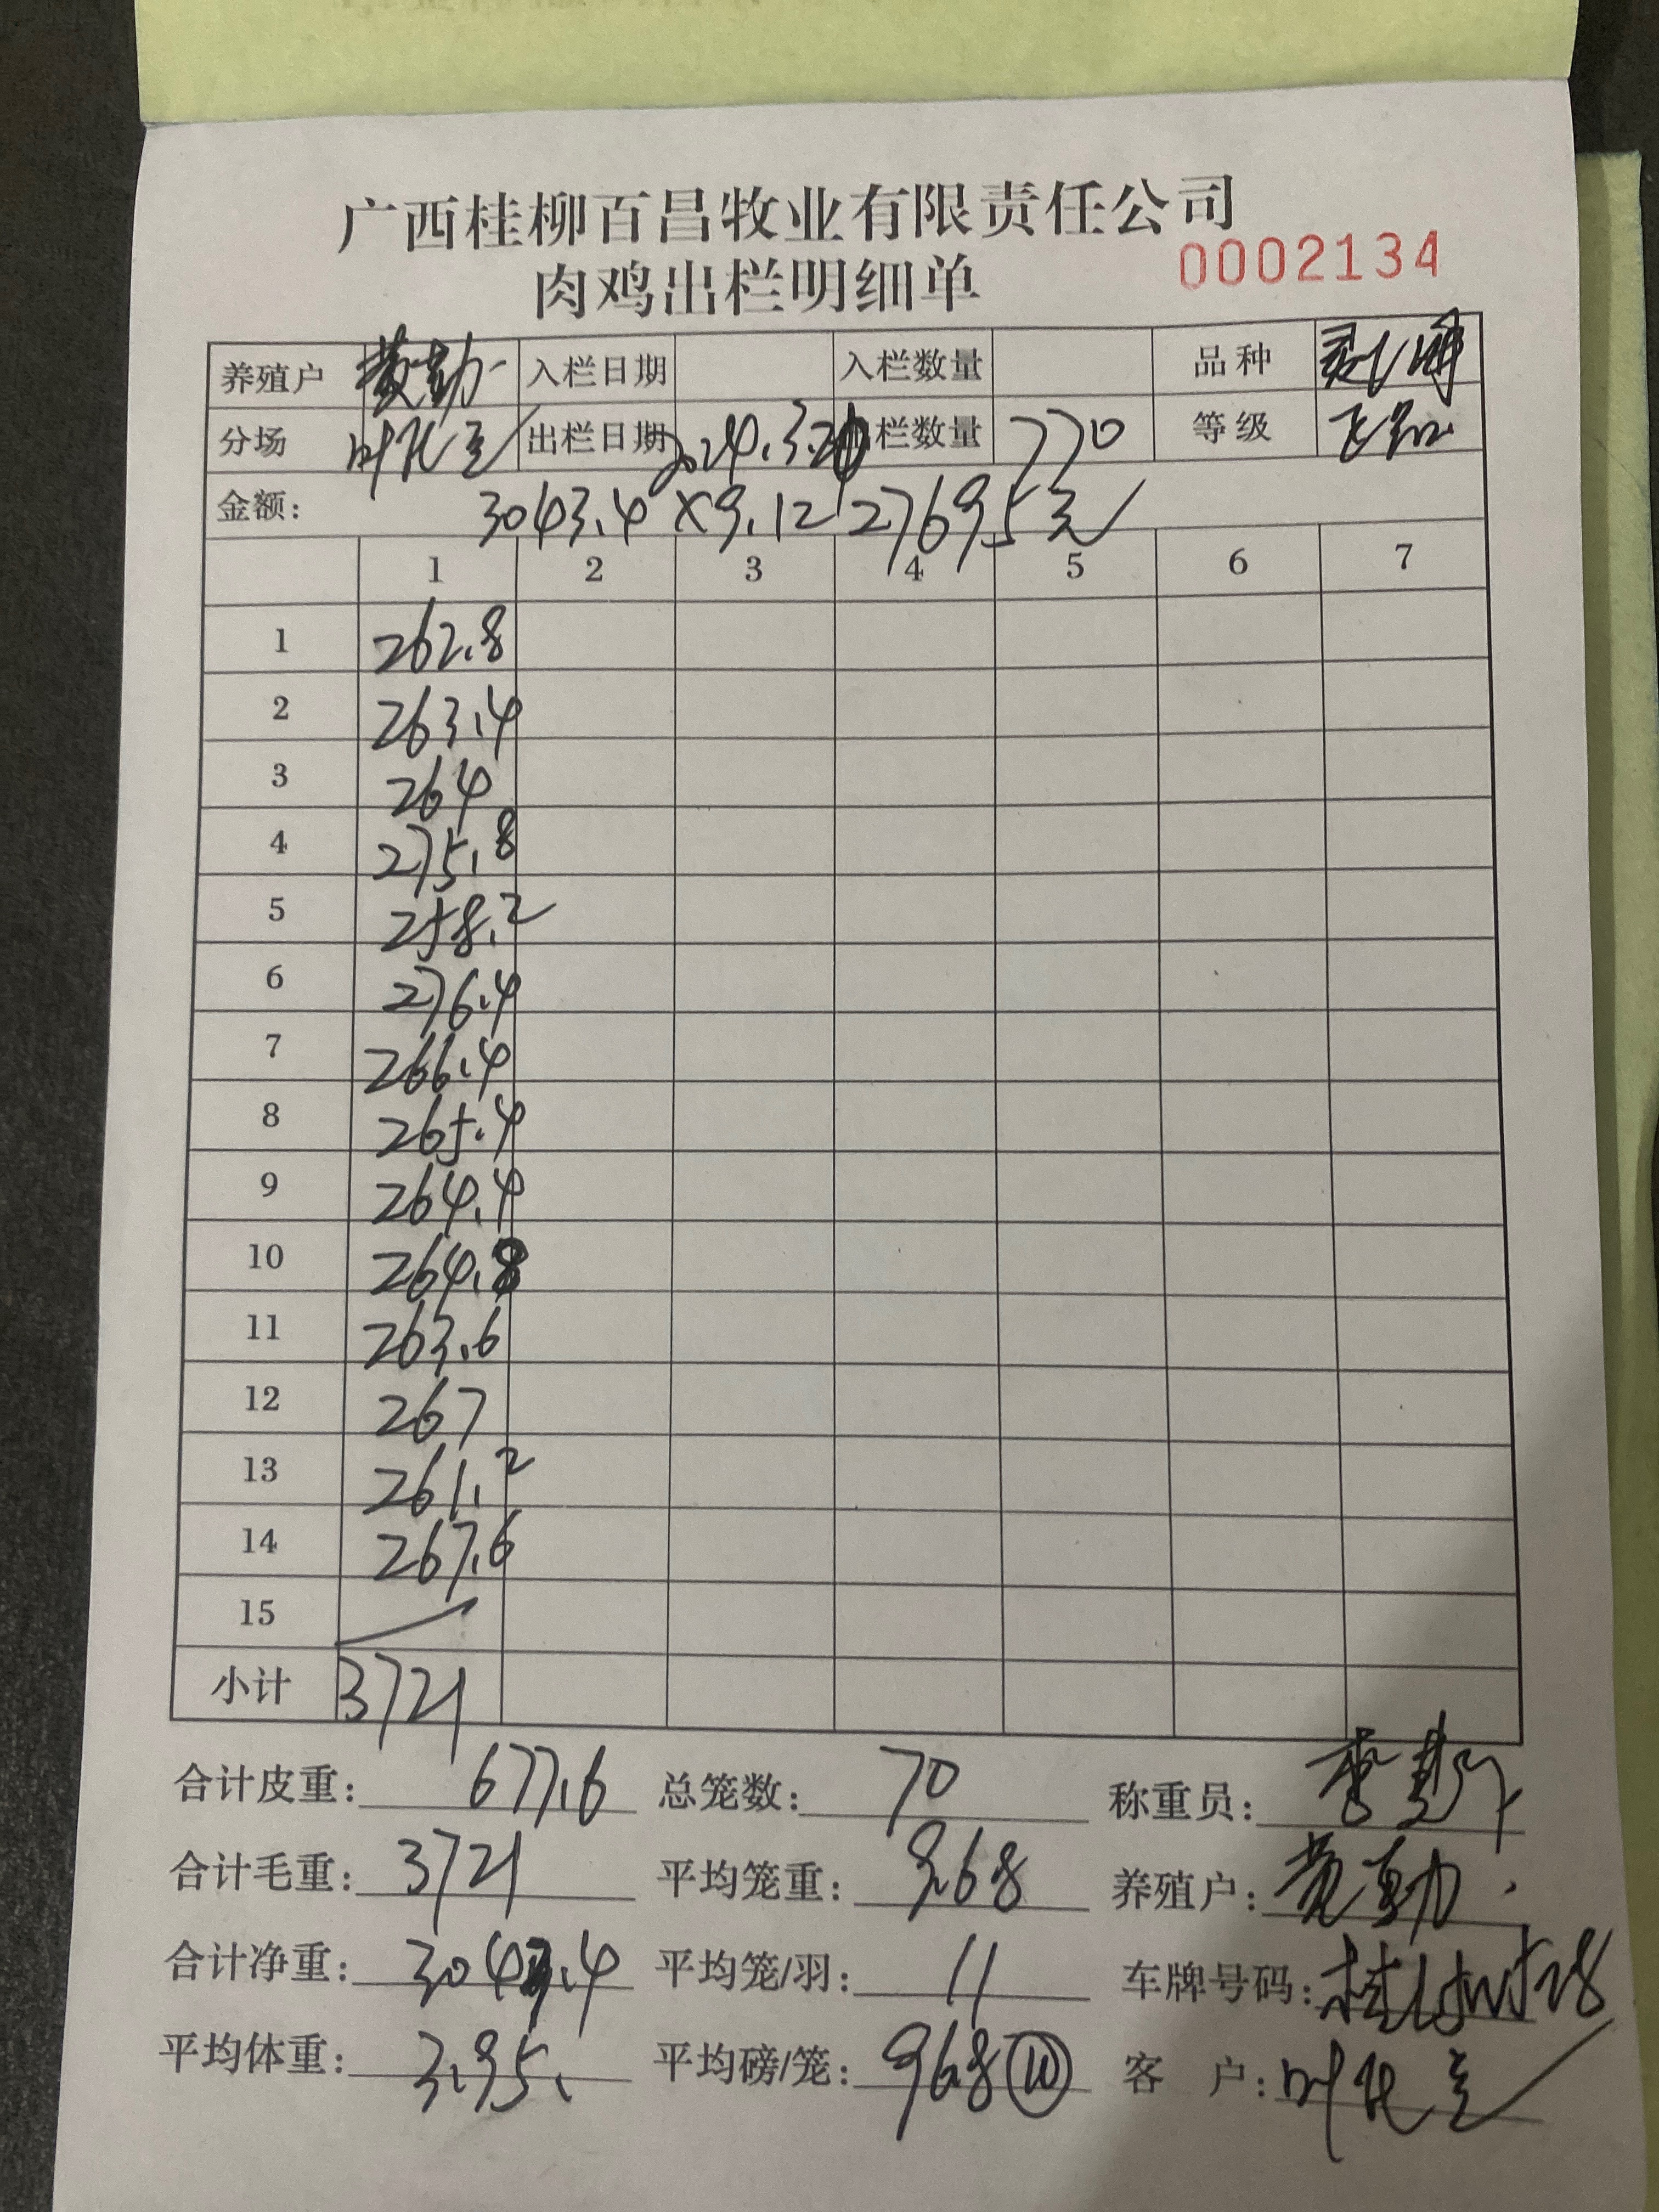 广西桂柳百昌牧业有限责任公司
肉鸡出栏明细单 0002134
养殖户 黄勤 入栏日期 入栏数量 品种
分场 叶托主 出栏日期 2024.3.20 栏数量 770 等级
金额: 3043.4 ×9.12 27695元
1 2 3 4 5 6 7
1 262.8
2 263.4
3 264
4 275.8
5 258.2
6 276.4
7 266.4
8 265.4
9 264.4
10 264.8
11 263.6
12 267
13 261.2
14 267.6
15
小计 3721
合计皮重: 677.6 总笼数: 70 称重员:
合计毛重: 3721 平均笼重: 9.68 养殖户: 黄勤
合计净重: 3043.4 平均笼/羽: 11 车牌号码:
平均体重: 3.95 平均磅/笼: 9.68 ⑩ 客 户: